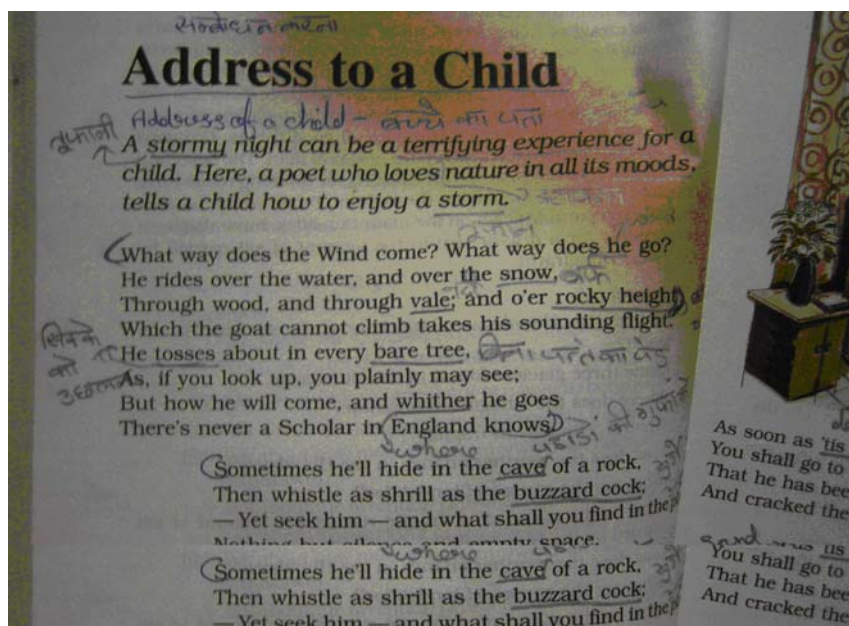 सम्बोधन करना
Address to a Child
Address of a child - बच्चे का पता
तूफानी
A stormy night can be a terrifying experience for a
child. Here, a poet who loves nature in all its moods,
tells a child how to enjoy a storm.
तूफान
What way does the Wind come? What way does he go?
He rides over the water, and over the snow,
बर्फ
Through wood, and through vale; and o'er rocky height,
Which the goat cannot climb takes his sounding flight.
He tosses about in every bare tree,
As, if you look up, you plainly may see;
But how he will come, and whither he goes
There's never a Scholar in England knows.
where
Sometimes he'll hide in the cave of a rock,
Then whistle as shrill as the buzzard cock;
— Yet seek him — and what shall you find in the
Nothing but silence and empty space.
where
Sometimes he'll hide in the cave of a rock,
Then whistle as shrill as the buzzard cock;
— Yet seek him — and what shall you find in the
As soon as 'tis
You shall go to
That he has bee
And cracked the
us
You shall go to
That he has bee
And cracked the